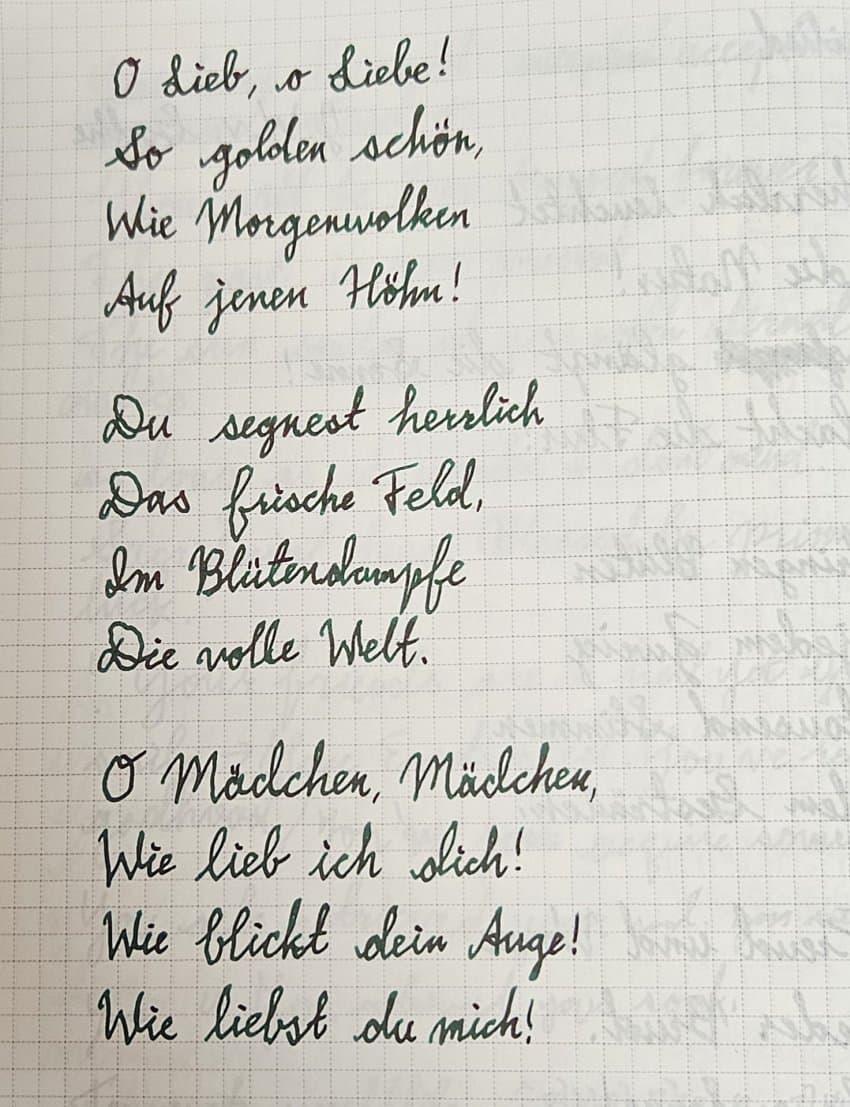 O Lieb, o Liebe!
So golden schön,
Wie Morgenwolken
Auf jenen Höhn!
Du segnest herrlich
Das frische Feld,
Im Blütendampfe
Die volle Welt.
O Mädchen, Mädchen,
Wie lieb ich dich!
Wie blickt dein Auge!
Wie liebst du mich!